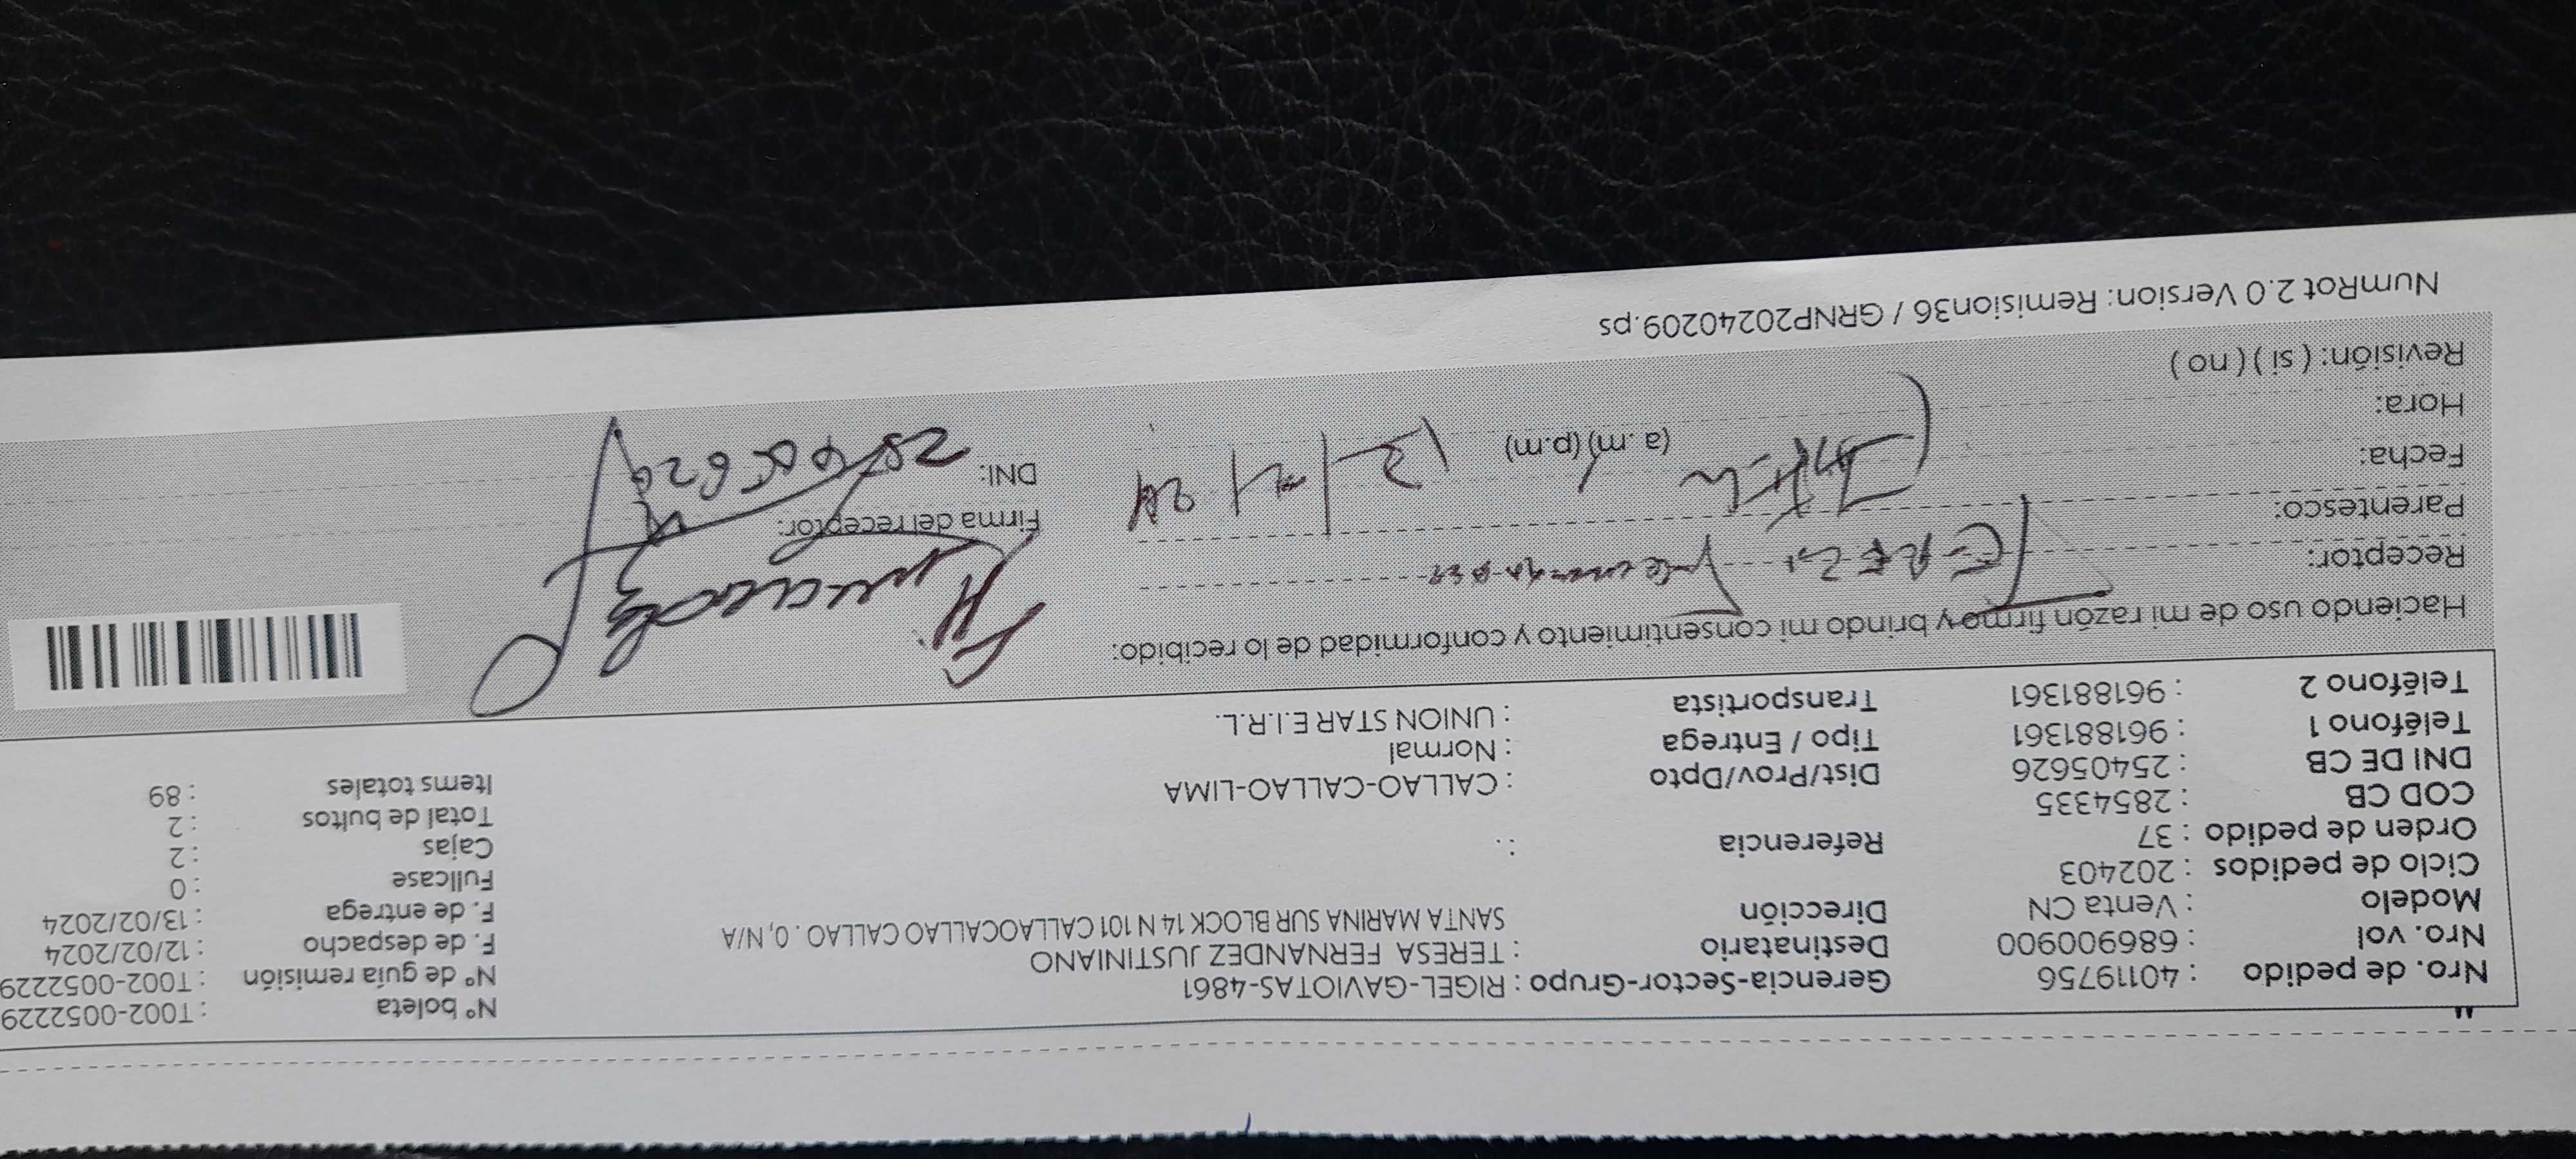 Nº boleta : T002-0052229
Nro. de pedido : 40119756 Gerencia-Sector-Grupo : RIGEL-GAVIOTAS-4861 Nº de guía remisión : T002-0052229
Nro. vol : 686900900 Destinatario : TERESA FERNANDEZ JUSTINIANO F. de despacho : 12/02/2024
Modelo : Venta CN Dirección SANTA MARINA SUR BLOCK 14 N 101 CALLAOCALLAO CALLAO . 0, N/A F. de entrega : 13/02/2024
Ciclo de pedidos : 202403 Fullcase : 0
Orden de pedido : 37 Referencia : . Cajas : 2
COD CB : 2854335 Total de bultos : 2
DNI DE CB : 25405626 Dist/Prov/Dpto : CALLAO-CALLAO-LIMA Items totales : 89
Teléfono 1 : 961881361 Tipo / Entrega : Normal
Teléfono 2 : 961881361 Transportista : UNION STAR E.I.R.L.
Haciendo uso de mi razón firmo y brindo mi consentimiento y conformidad de lo recibido:
Receptor:
Parentesco: Firma del receptor:
Fecha: DNI: 25405626
Hora: (a. m) (p.m)
Revisión: ( si ) ( no )
NumRot 2.0 Version: Remision36 / GRNP20240209.ps